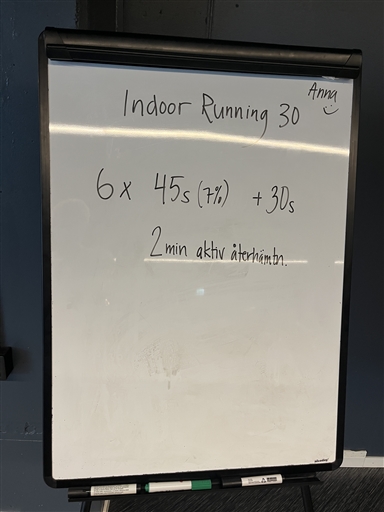 Anna
Indoor Running 30
6x 45s (7%) + 30s
2 min aktiv återhämtn.